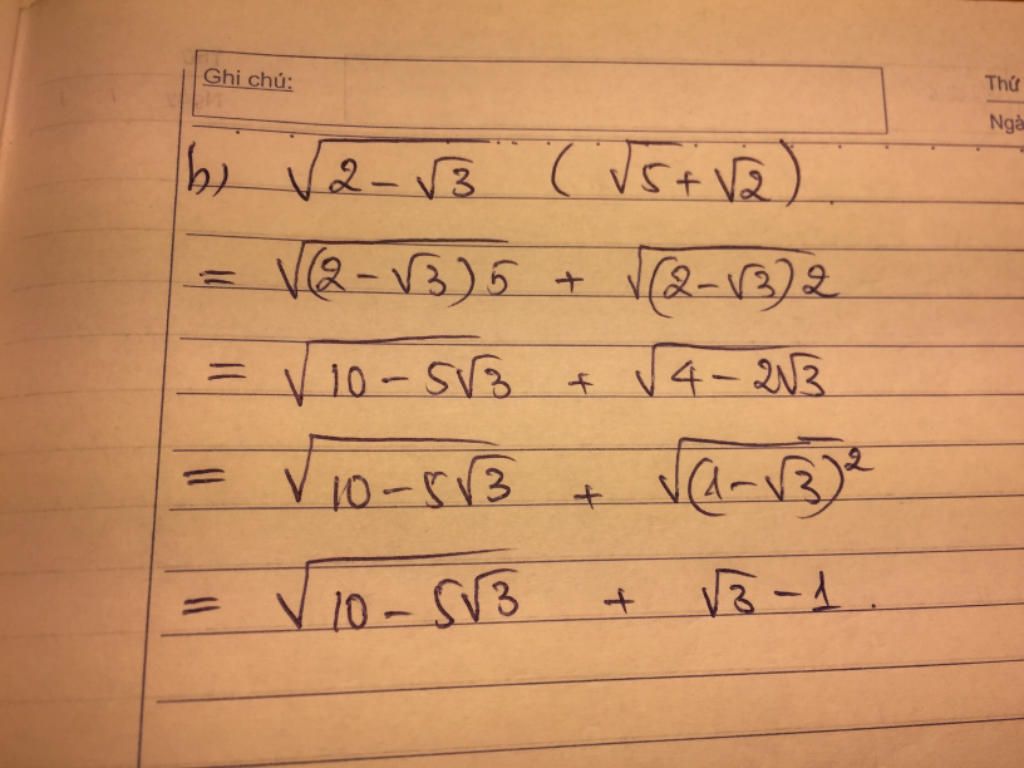 Ghi chú:
Thứ
Ngà
b) √(2 - √3) (√5 + √2).
= √((2 - √3)5) + √((2 - √3)2)
= √(10 - 5√3) + √(4 - 2√3)
= √(10 - 5√3) + √((1 - √3)²)
= √(10 - 5√3) + √3 - 1.